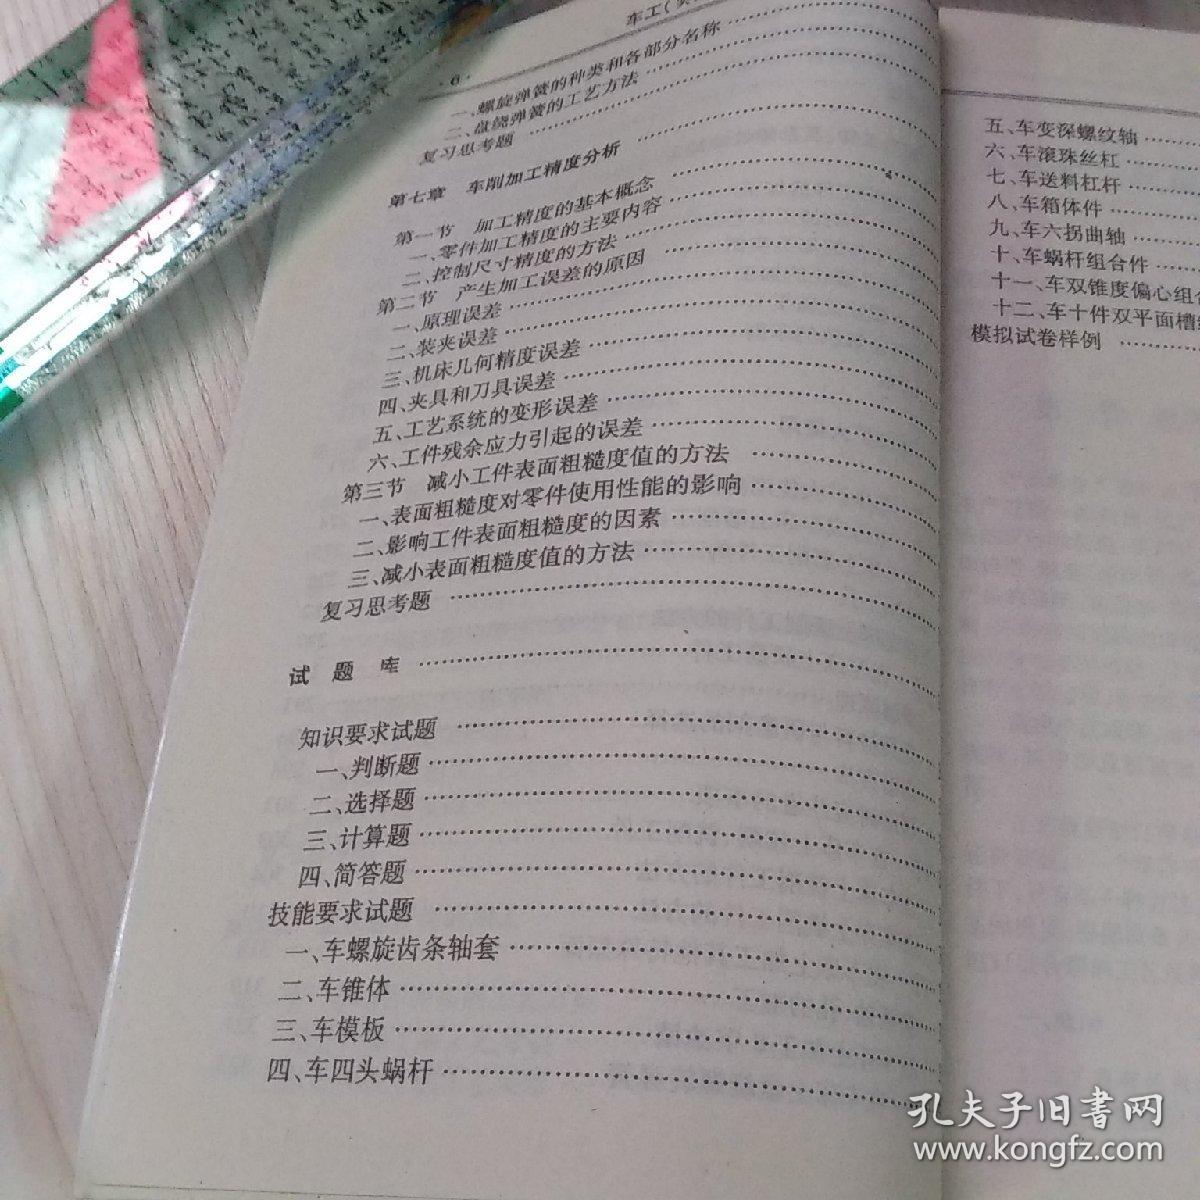 ·6·
车工(
一、螺旋弹簧的种类和各部分名称
二、盘绕弹簧的工艺方法
复习思考题
第七章 车削加工精度分析
第一节 加工精度的基本概念
一、零件加工精度的主要内容
二、控制尺寸精度的方法
第二节 产生加工误差的原因
一、原理误差
二、装夹误差
三、机床几何精度误差
四、夹具和刀具误差
五、工艺系统的变形误差
六、工件残余应力引起的误差
第三节 减小工件表面粗糙度值的方法
一、表面粗糙度对零件使用性能的影响
二、影响工件表面粗糙度的因素
三、减小表面粗糙度值的方法
复习思考题
试题库
知识要求试题
一、判断题
二、选择题
三、计算题
四、简答题
技能要求试题
一、车螺旋齿条轴套
二、车锥体
三、车模板
四、车四头蜗杆
五、车变深螺纹轴
六、车滚珠丝杠
七、车送料杠杆
八、车箱体件
九、车六拐曲轴
十、车蜗杆组合件
十一、车双锥度偏心组合
十二、车十件双平面槽
模拟试卷样例
孔夫子旧书网
www.kongfz.com